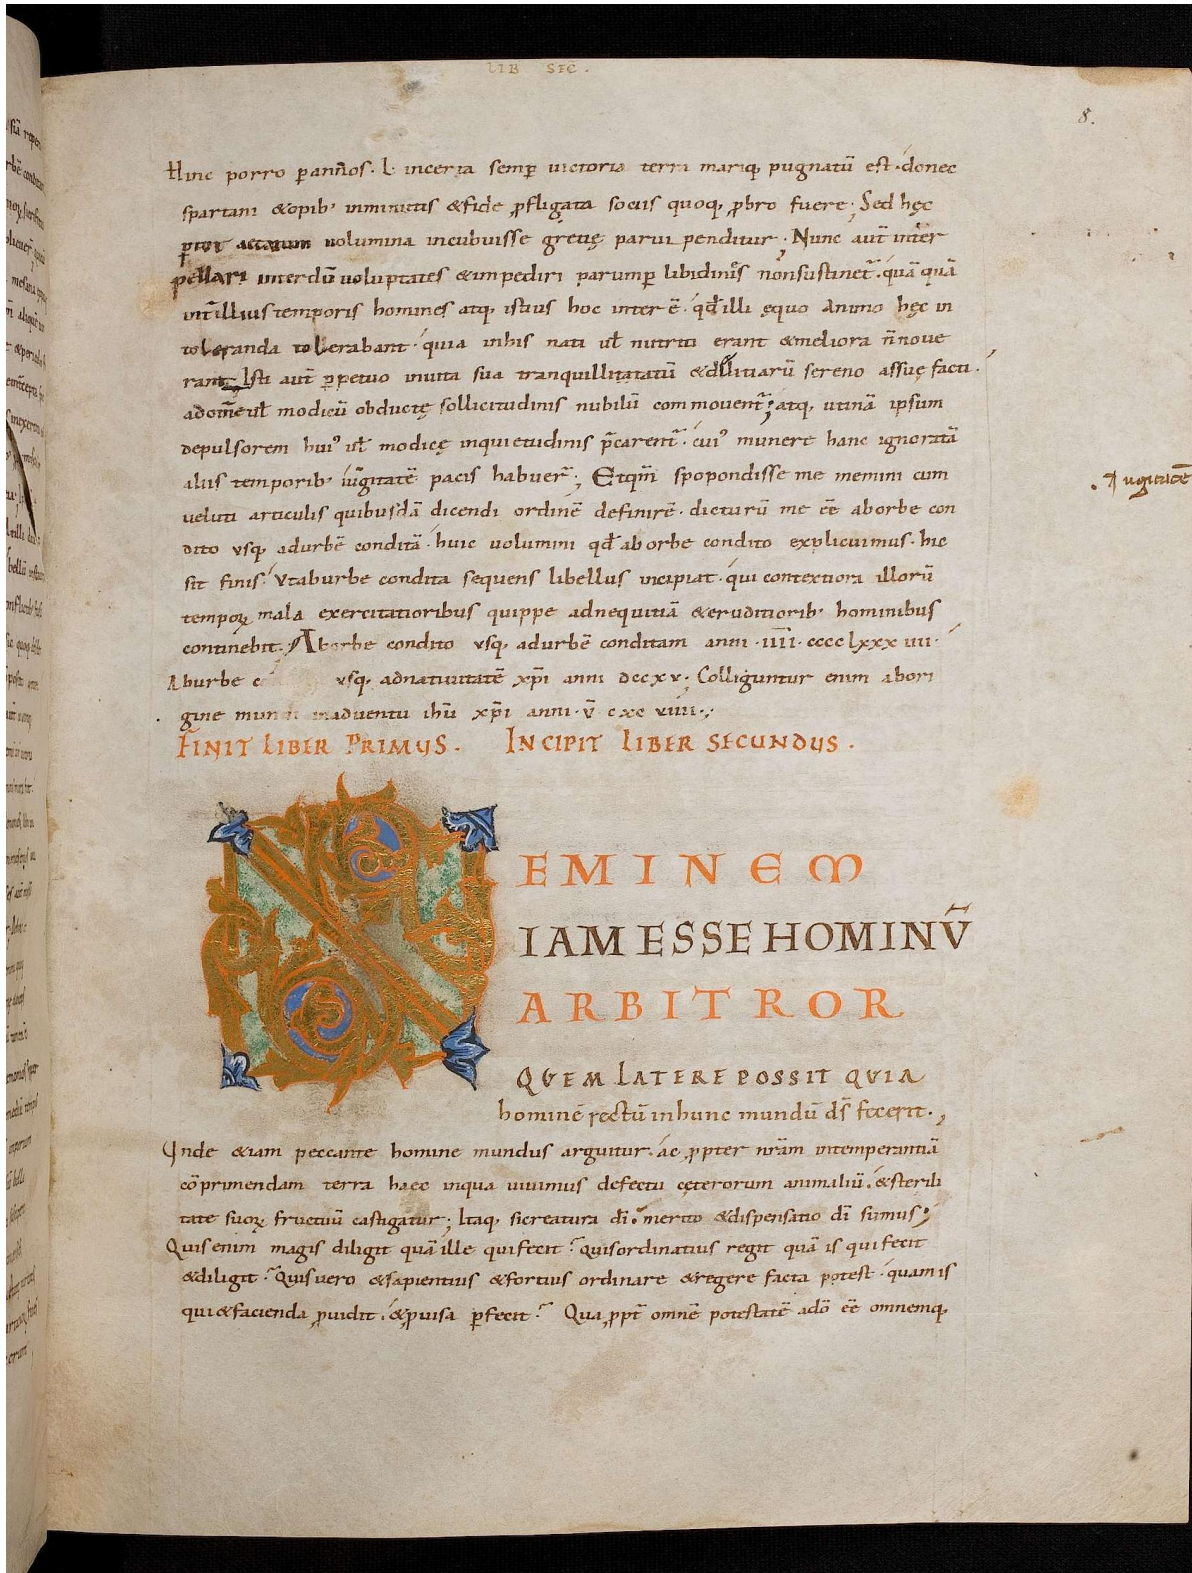 LIB SEC.
8.
Hinc porro p̄ annos. L incerta semp̄ uictoria terra mariq; pugnatū est. donec
spartani &opib' inminutis &fide ꝓfligata sociis quoq; ꝓbro fuere; Sed hęc
uolumina incubuisse gretię parui penditur; Nunc aut̄ inter
pellari interdū uoluptates &impediri parump̄ libidines non sustinet̄. quā quā
int̄ illius temporis homines atq; istius hoc inter ē. qd̄ illi ęquo animo hęc in
toleranda tolerabant. quia inhis nati ut̄ nutriti erant &meliora n̄ noue
rant. Isti aut̄ p̄petuo inuita sua tranquillitatū &dilitiarū sereno assuęfacti.
adom̄e ut̄ modicū obductę sollicitudinis nubilū commouent̄; atq; utinā ipsum
depulsorem hui' ut̄ modicę inquietudinis p̄carent̄. cui' munere hanc ignoratā
aliis temporib' iūgitatē pacis habuer̄; Etqm̄ spopondisse me memini cum
ueluti articulis quibusdā dicendi ordinē definirē. dicturū me ēē aborbe con
dito vsq; adurbē conditā. huic uolumini qd̄ aborbe condito explicuimus. hic
sit finis. vtaburbe condita sequens libellus incipiat. qui contextiora illorū
temporꝝ mala exercitatioribus quippe adnequitiā &eruditiorib' hominibus
continebit. Aborbe condito vsq; adurbē conditam anni .iiii. cccc lxxx iiii.
Aburbe c vsq; adnatiuitatē xp̄i anni dccxv; Colliguntur enim abori
gine mundi inaduentu ihū xp̄i anni. v̄ cxc viiii.;
FINIT LIBER PRIMUS. INCIPIT LIBER SECUNDUS.
NEMINEM
IAM ESSE HOMINŪ
ARBITROR
QVEM LATERE POSSIT QVIA
hominē rectū inhunc mundū ds̄ fecerit.,
Inde &iam peccante homine mundus arguitur. ac ꝓpter nrām intemperantiā
cōprimendam terra haec inqua uiuimus defectu cęterorum animaliū. &sterili
tate suorꝝ fructuū castigatur; Itaq; sicreatura dī. merito &dispensatio dī sumus;
Quis enim magis diligit quā ille qui fecit? quis ordinatius regit quā is qui fecit
&diligit? Quis uero &sapientius &fortius ordinare &regere facta potest. quam is
qui &facienda ꝓuidit. &ꝓuisa p̄fecit? Qua ꝓpt̄ omnē potestatē adō ēē omnemq;
.Iugitatē